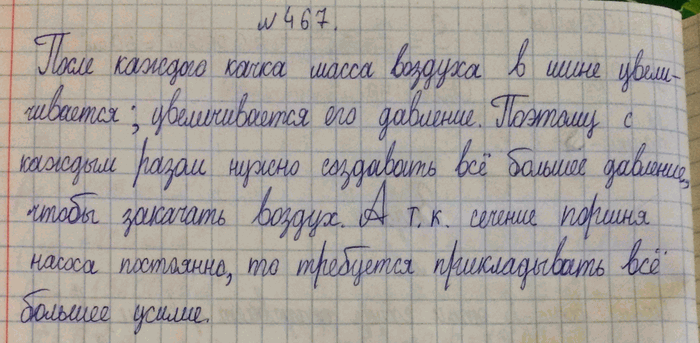 №467.
После каждого качка масса воздуха в шине увели-
чивается; увеличивается его давление. Поэтому с
каждым разом нужно создавать всё большее давление,
чтобы закачать воздух. А т.к. сечение поршня
насоса постоянно, то требуется прикладывать всё
большее усилие.